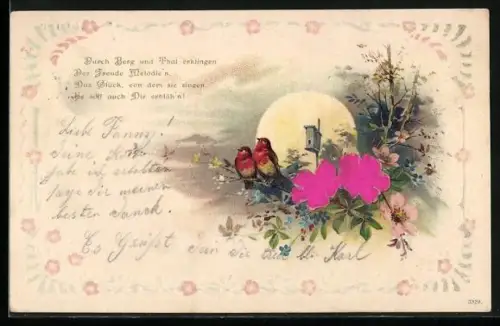 Durch Berg und Thal erklingen
Der Freude Melodie'n.
Das Glück, von dem sie singen
Es soll auch Dir erblüh'n!
Liebe Fanny!
deine Karte
habe ich erhalten
sage dir meinen
besten Dank.
Es Grüßt
Karl
5979.